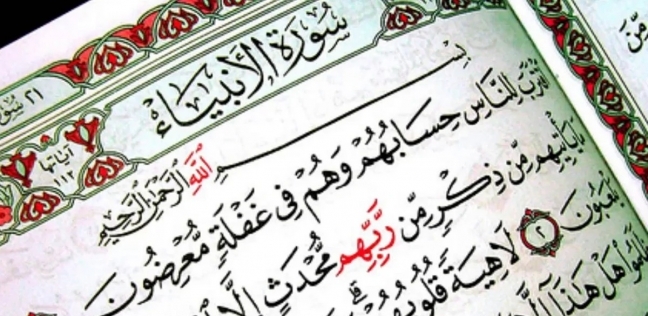 سُورَةُ الأَنْبِيَاءِ
آيَاتُهَا
١١٢
٢١
بِسْمِ ٱللَّهِ ٱلرَّحْمَٰنِ ٱلرَّحِيمِ
ٱقْتَرَبَ لِلنَّاسِ حِسَابُهُمْ وَهُمْ فِي غَفْلَةٍ مُّعْرِضُونَ
يَأْتِيهِم مِّن ذِكْرٍ مِّن رَّبِّهِم مُّحْدَثٍ إِلَّا
يَلْعَبُونَ ٢ لَاهِيَةً قُلُوبُهُمْ
هَلْ هَٰذَا إِلَّا
مِّن